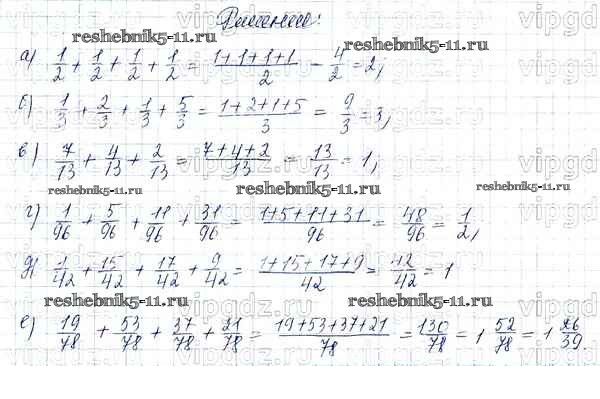 Решение:
reshebnik5-11.ru
а) 1/2 + 1/2 + 1/2 + 1/2 = (1+1+1+1)/2 = 4/2 = 2,
reshebnik5-11.ru
б) 1/3 + 2/3 + 1/3 + 5/3 = (1+2+1+5)/3 = 9/3 = 3,
в) 7/13 + 4/13 + 2/13 = (7+4+2)/13 = 13/13 = 1,
reshebnik5-11.ru reshebnik5-11.ru reshebnik5-11.ru
г) 1/96 + 5/96 + 11/96 + 31/96 = (1+5+11+31)/96 = 48/96 = 1/2,
д) 1/42 + 15/42 + 17/42 + 9/42 = (1+15+17+9)/42 = 42/42 = 1
reshebnik5-11.ru reshebnik5-11.ru
е) 19/78 + 53/78 + 37/78 + 21/78 = (19+53+37+21)/78 = 130/78 = 1 52/78 = 1 26/39.
reshebnik5-11.ru reshebnik5-11.ru